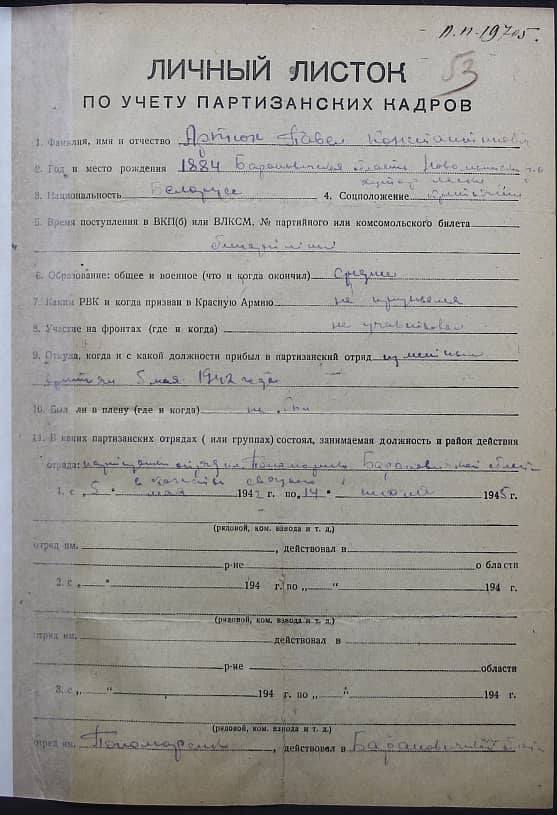 53
ЛИЧНЫЙ ЛИСТОК
ПО УЧЕТУ ПАРТИЗАНСКИХ КАДРОВ
1. Фамилия, имя и отчество Артюх Павел Константинович
2. Год и место рождения 1884 Барановичская область
3. Национальность Белорус 4. Соцположение
5. Время поступления в ВКП(б) или ВЛКСМ, № партийного или комсомольского билета
беспартийный
6. Образование: общее и военное (что и когда окончил) среднее
7. Каким РВК и когда призван в Красную Армию не призывался
8. Участие на фронтах (где и когда) не участвовал
9. Откуда, когда и с какой должности прибыл в партизанский отряд из местных
крестьян 5 мая 1942 года
10. Был ли в плену (где и когда) не был
11. В каких партизанских отрядах ( или группах) состоял, занимаемая должность и район действия
отряда: партизанский отряд им. Пономаренко Барановичской области
в качестве связного
1. с „5 " мая 1942 г. по „14 " июля 1945 г.
(рядовой, ком. взвода и т. д.)
отряд им. , действовал в
р-не о области
2. с „ " 194 г. по „ " 194 г.
(рядовой, ком. взвода и т. д.)
отряд им. действовал в
р-не области
3. с „ " 194 г. по „ " 194 г.
(рядовой, ком. взвода и т. д.)
отряд им. Пономаренко , действовал в Барановичской